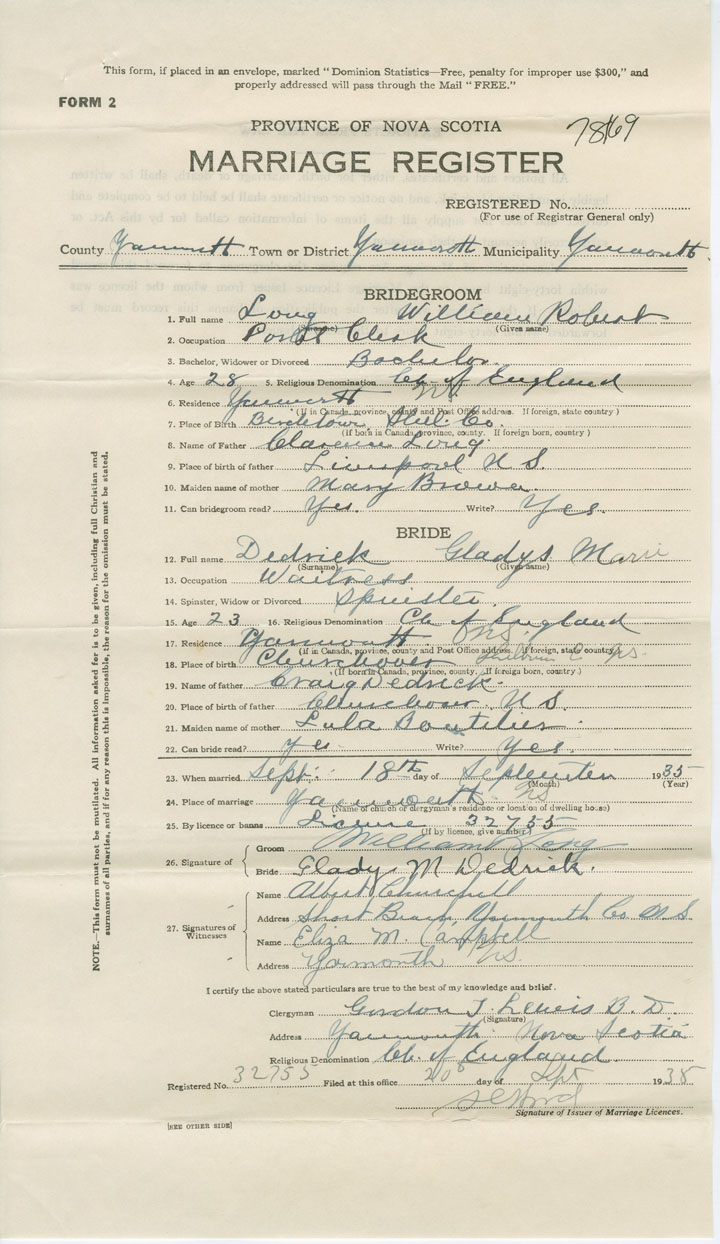 This form, if placed in an envelope, marked "Dominion Statistics—Free, penalty for improper use $300," and
properly addressed will pass through the Mail "FREE."
FORM 2
PROVINCE OF NOVA SCOTIA
MARRIAGE REGISTER
REGISTERED No.
(For use of Registrar General only)
County Yarmouth Town or District Yarmouth Municipality Yarmouth
BRIDEGROOM
1. Full name Long William Robert
(Given name)
2. Occupation Clerk
3. Bachelor, Widower or Divorced Bachelor
4. Age 28 5. Religious Denomination Ch of England
6. Residence Yarmouth NS.
(If in Canada, province, county and Post Office address. If foreign, state country)
7. Place of Birth Birchtown Shel. Co.
(If born in Canada, province, county. If foreign born, country)
8. Name of Father Clarence Long
9. Place of birth of father Liverpool N.S.
10. Maiden name of mother Mary Brower
11. Can bridegroom read? Yes. Write? Yes.
BRIDE
12. Full name Dedrick Gladys Marie
(Surname) (Given name)
13. Occupation Waitress
14. Spinster, Widow or Divorced Spinster.
15. Age 23 16. Religious Denomination Ch of England
17. Residence Yarmouth NS.
(If in Canada, province, county and Post Office address. If foreign, state country)
18. Place of birth Churchover Shelburne C NS.
(If born in Canada, province, county. If foreign born, country.)
19. Name of father Craig Dedrick.
20. Place of birth of father Churchover. N.S.
21. Maiden name of mother Lula Boutilier.
22. Can bride read? yes Write? Yes.
23. When married Sept. 18th day of September 1935
(Month) (Year)
24. Place of marriage Yarmouth NS
(Name of church or clergyman's residence or location of dwelling house)
25. By licence or banns License 32755
(If by licence, give number)
26. Signature of
Groom William R Long
Bride Gladys M Dedrick.
27. Signatures of Witnesses
Name Albert Churchill
Address Short Beach, Yarmouth Co N.S.
Name Eliza M. Campbell
Address Yarmouth NS.
I certify the above stated particulars are true to the best of my knowledge and belief.
Clergyman Gordon T. Lewis B.D.
(Signature)
Address Yarmouth. Nova Scotia
Religious Denomination Ch. of England.
Registered No. 32755 Filed at this office 20 day of Sept 1935
Signature of Issuer of Marriage Licences.
[SEE OTHER SIDE]
NOTE.—This form must not be mutilated. All information asked for is to be given, including full Christian and
surnames of all parties, and if for any reason this is impossible, the reason for the omission must be stated.